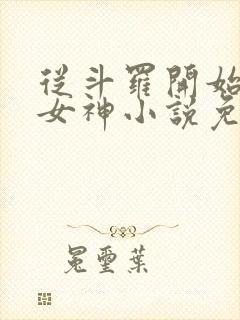 從斗羅開始
女神小説免
冕璽葉